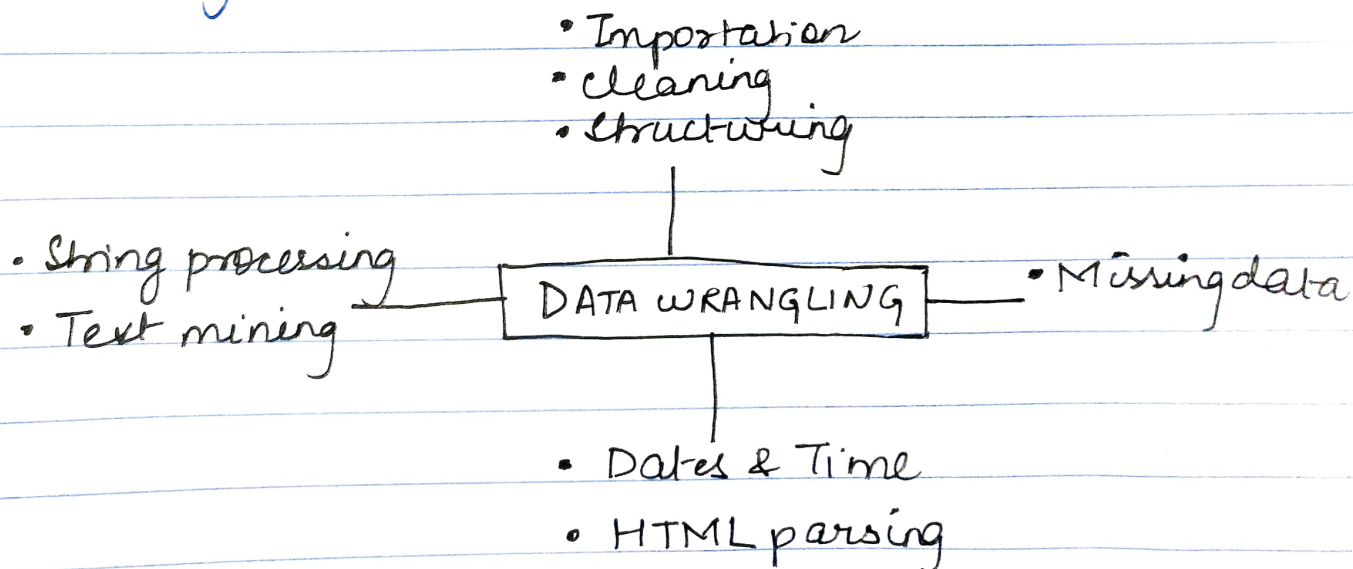 • Importation
• Cleaning
• Structuring
• String processing
• Text mining
DATA WRANGLING
• Missing data
• Dates & Time
• HTML parsing